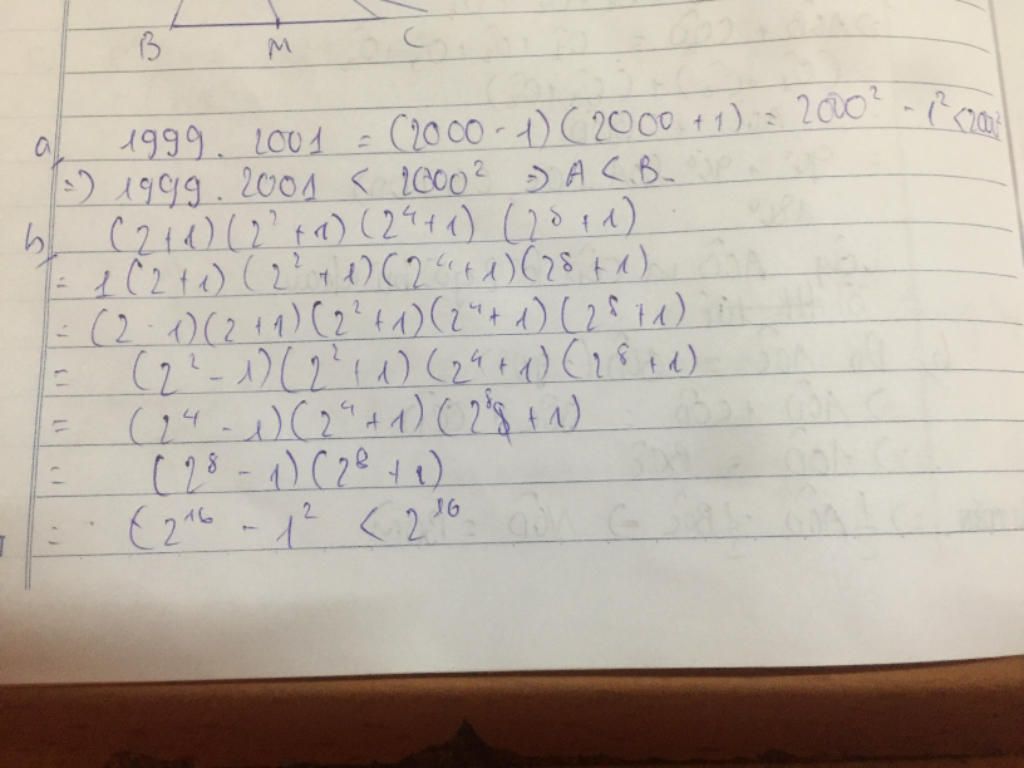 B M C
a, 1999. 2001 = (2000 - 1)(2000 + 1) = 2000² - 1² < 2000²
=> 1999. 2001 < 2000² => A < B.
b, (2+1)(2²+1)(2⁴+1) (2⁸+1)
= 1(2+1)(2²+1)(2⁴+1)(2⁸+1)
= (2-1)(2+1)(2²+1)(2⁴+1)(2⁸+1)
= (2²-1)(2²+1)(2⁴+1)(2⁸+1)
= (2⁴-1)(2⁴+1)(2⁸+1)
= (2⁸-1)(2⁸+1)
= (2¹⁶ - 1² < 2¹⁶